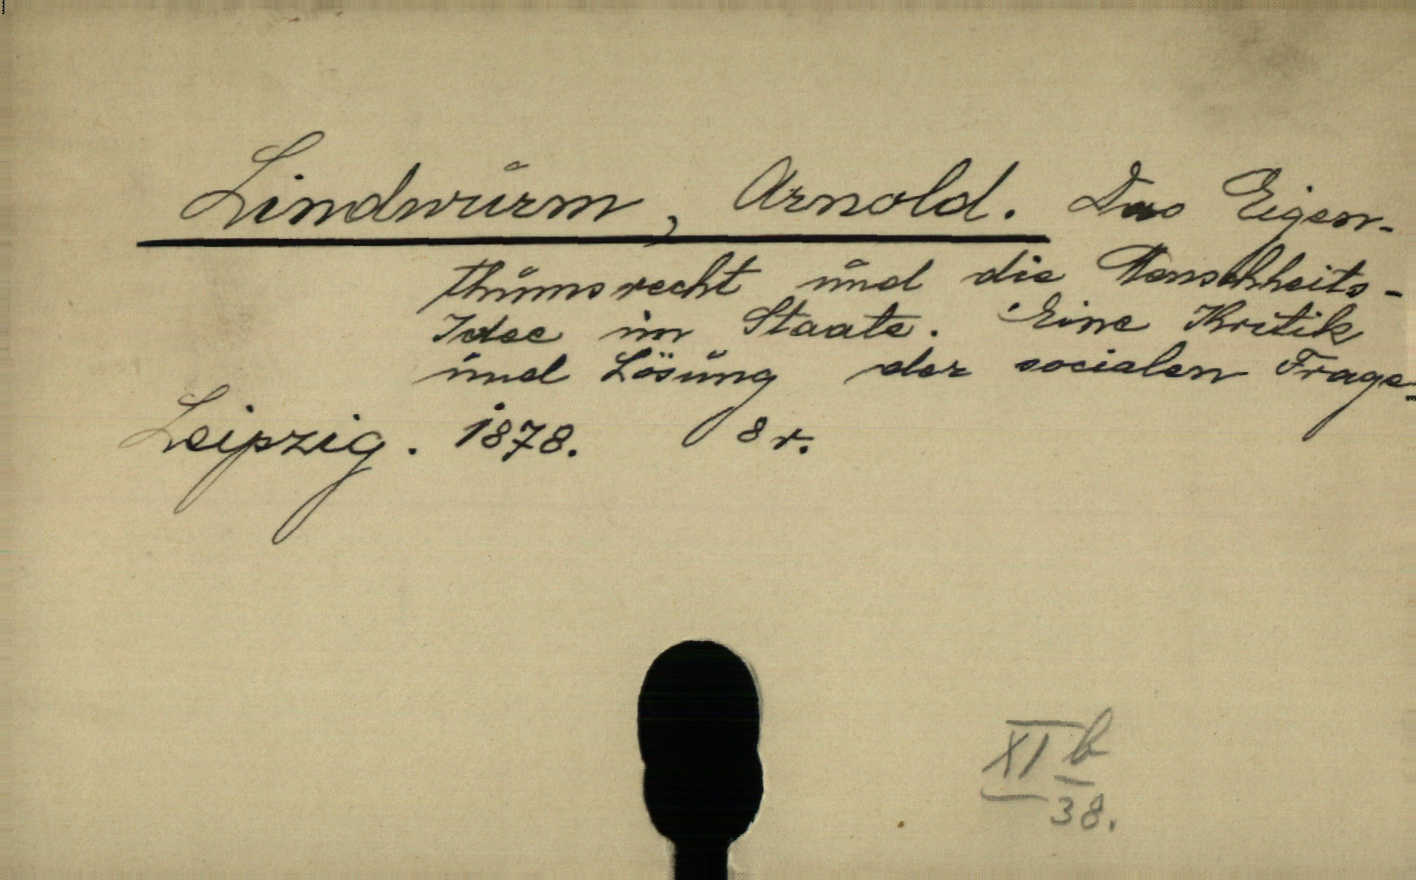 Lindwurm, Arnold. Das Eigen-
thumsrecht und die Menschheits-
Idee im Staate. Eine Kritik
und Lösung der socialen Frage.
Leipzig. 1878. 8r.
XI b
38.